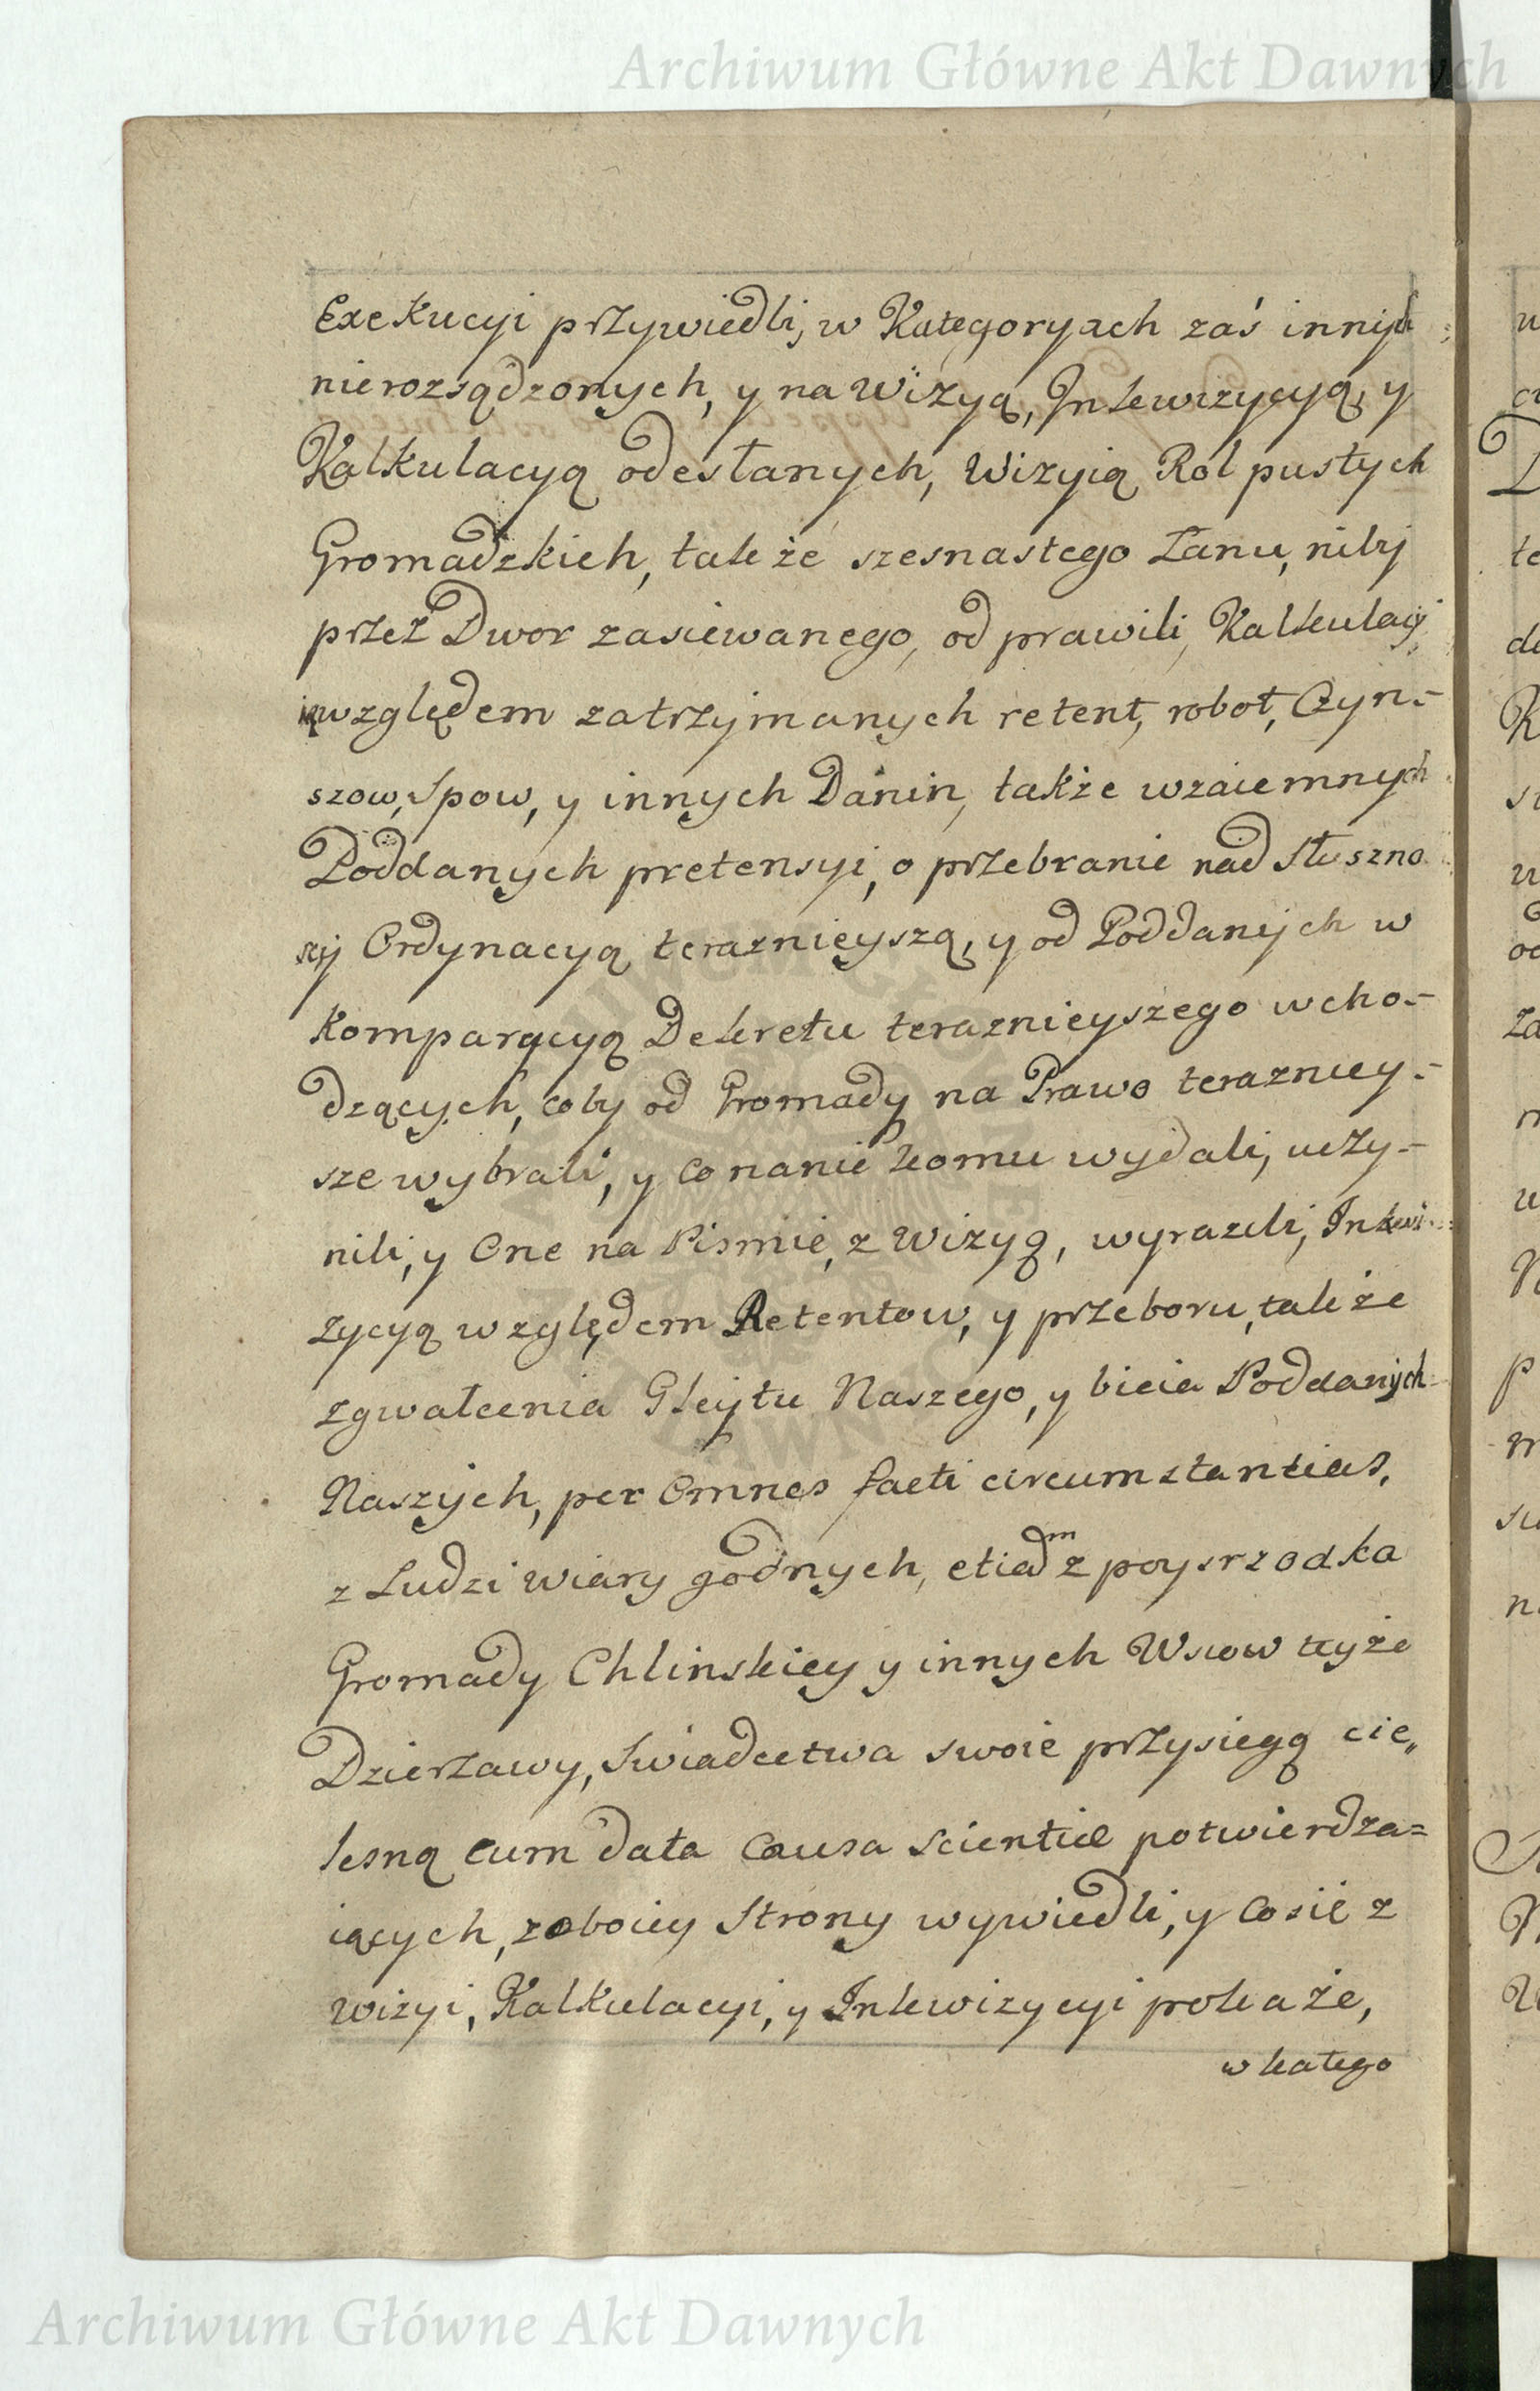 Archiwum Główne Akt Dawnych
Exekucyi przywiedli, w Kategoryach zaś innych
nierozsądzonych, y na Wizyą, Inkwizycyą, y
Kalkulacyą odesłanych, Wizyią Rol pustych
Gromadzkich, także szesnastego Łanu, niby
przez Dwor zasiewanego, odprawili, Kalkulacyi
względem zatrzymanych retent, robot, Czyn=
szow, Spow, y innych Danin, także wzaiemnych
Poddanych pretensyi, o przebranie nad słuszno
scij Ordynacyą teraznieyszą, y od Poddanych w
komparacyą Dekretu teraznieyszego wcho=
dzących, coby od Gromady na Prawo terazniey=
sze wybrali, y co nanie komu wydali, uczy=
nili, y One na Pismie, z Wizyą, wyrazili, Inkwi
zycyą względem Retentow, y przeboru, także
zgwałcenia Gleytu Naszego, y bicia Poddanych
Naszych, per omnes facti circumstantias,
z Ludzi wiary godnych, etiam z poysrzodka
Gromady Chlinskiey y innych Wsiow teyże
Dzierzawy, Swiadectwa swoie przysięgą cie„
lesną cum data causa scientiæ potwierdza=
iących, z oboiey Strony wywiedli, y co się z
wizyi, Kalkulacyi, y Inkwizycyi pokaże,
w katego
Archiwum Główne Akt Dawnych